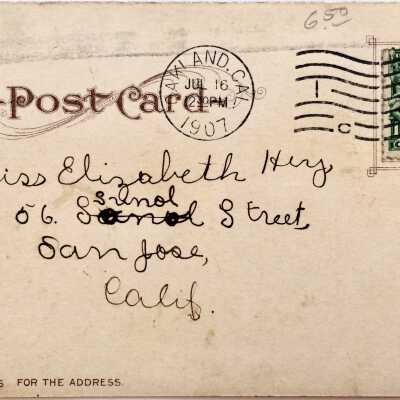 6.50
Post Card
OAKLAND, CAL.
JUL 16
1907
1
C
iss Elizabeth Hey
56. S Street,
San Jose,
Calif.
FOR THE ADDRESS.